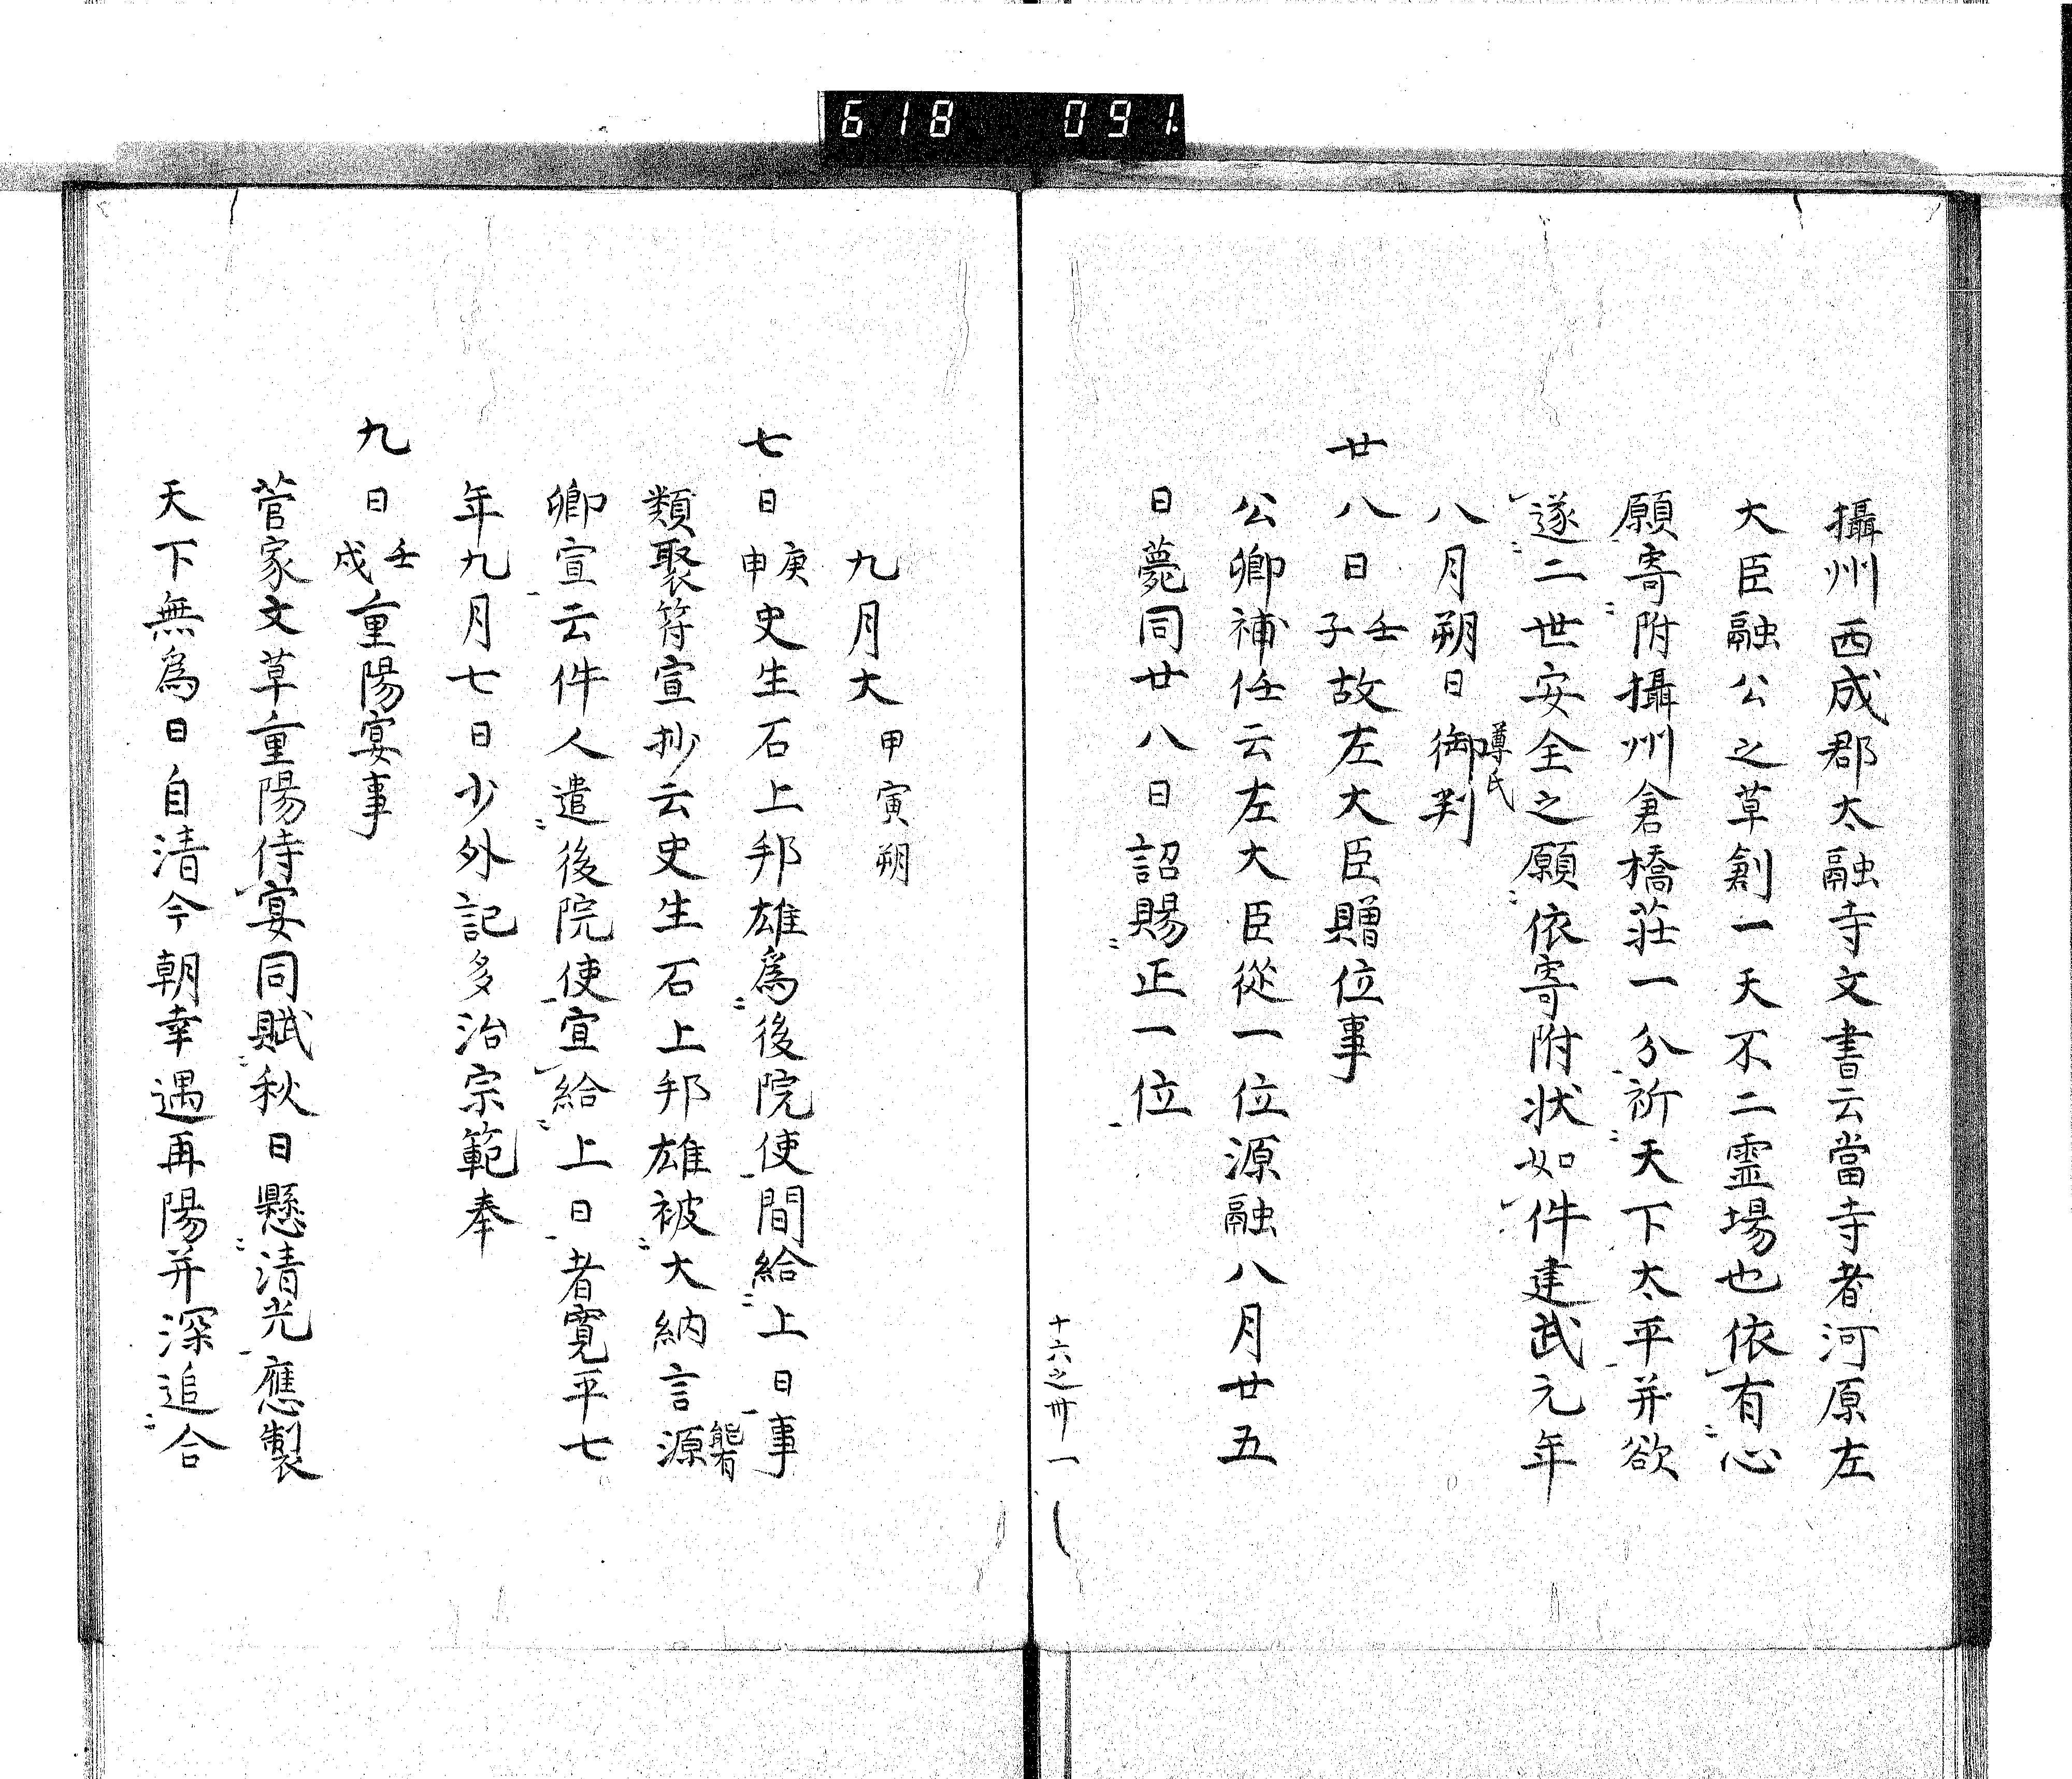 618 091
攝州西成郡太融寺文書云當寺者河原左
大臣融公之草創一天不二霊場也依有心
願寄附攝州倉橋荘一分祈天下太平并欲
遂二世安全之願依寄附状如件建武元年
八月朔日御判
尊氏
廿八日壬子故左大臣贈位事
公卿補任云左大臣從一位源融八月廿五
日薨同廿八日詔賜正一位
十六之卅一
九月大 甲寅朔
七日庚申史生石上邦雄爲後院使間給上日事
類聚符宣抄云史生石上邦雄被大納言源
能有
卿宣云件人遣後院使宣給上日者寛平七
年九月七日少外記多治宗範奉
九日壬戌重陽宴事
菅家文草重陽侍宴同賦秋日懸清光應製
天下無爲日自清今朝幸遇再陽并深追合